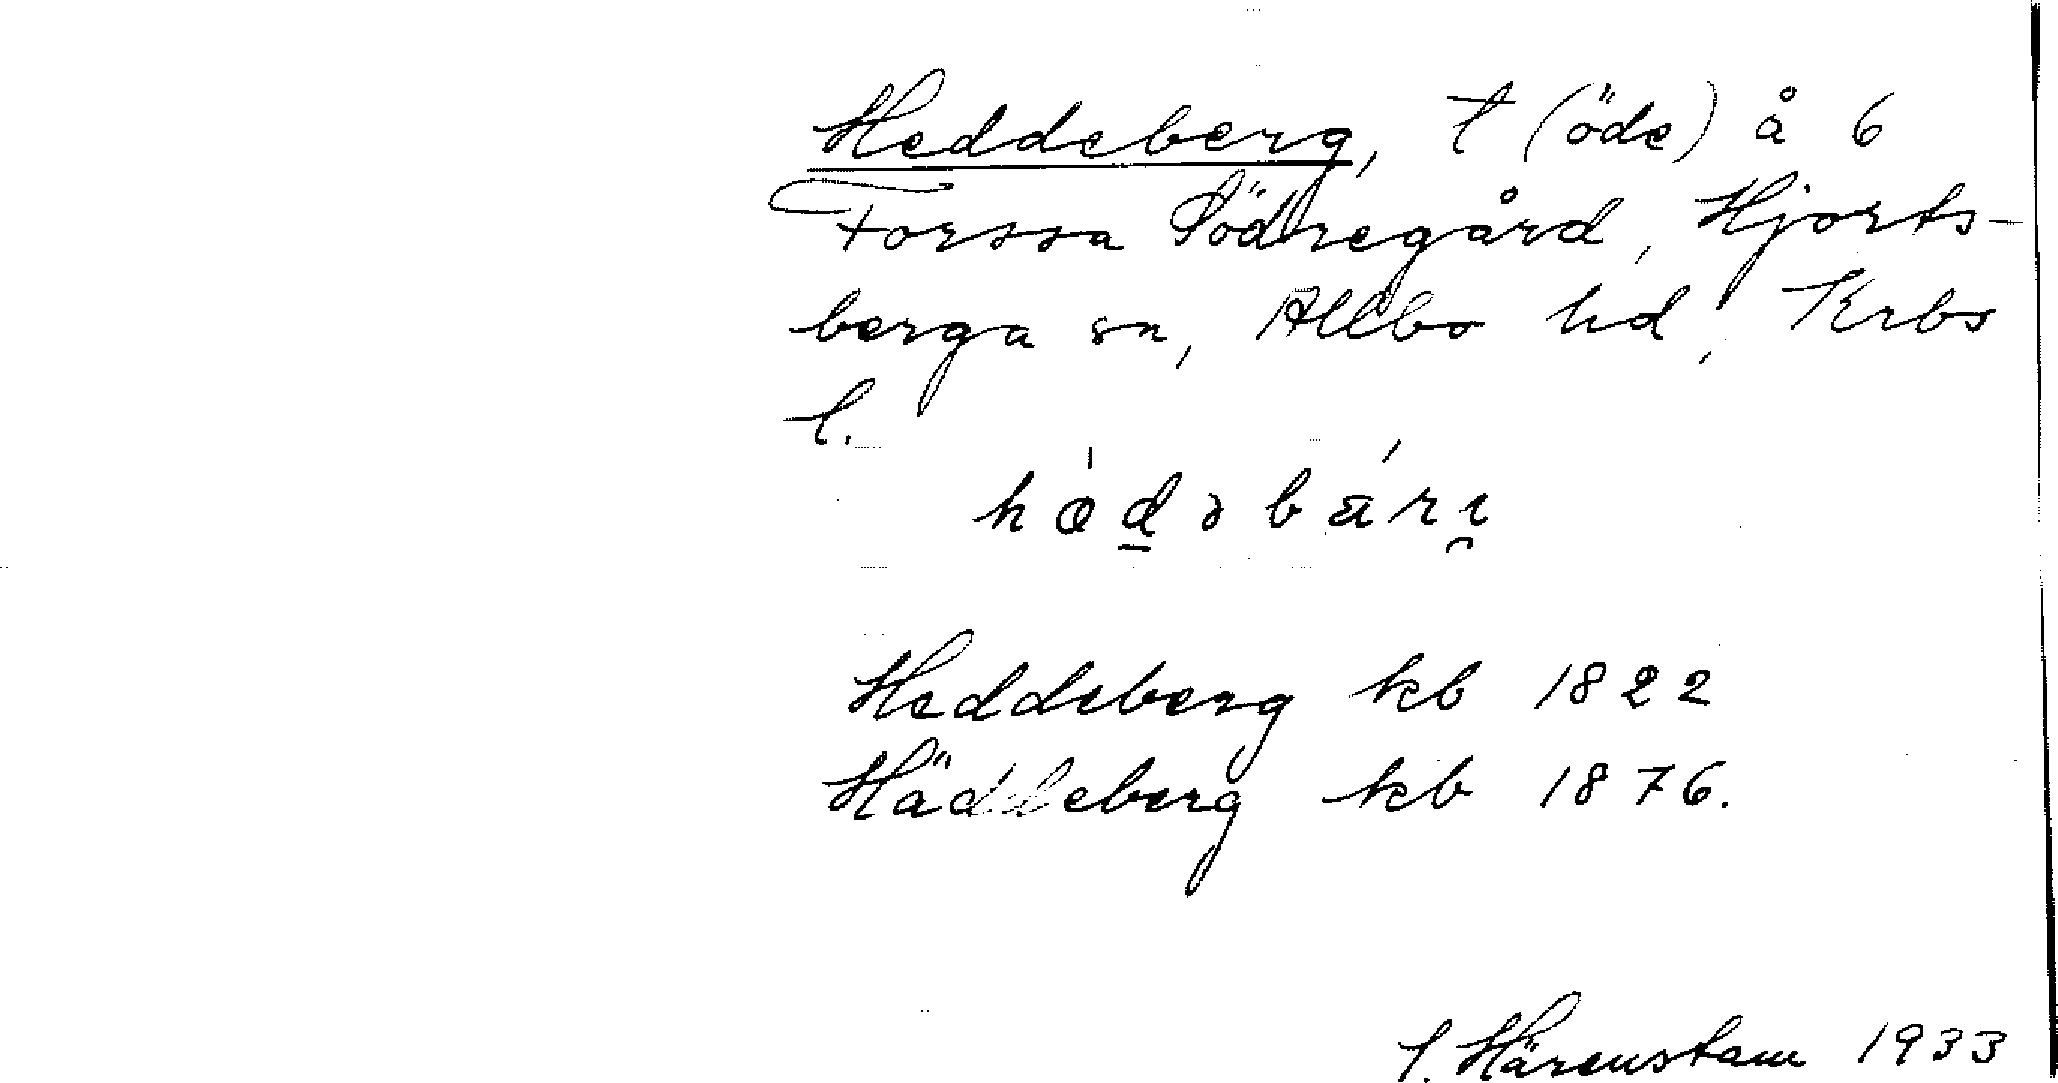 Heddeberg, t (öde) å 6
Forssa Södregård, Hjorts-
berga sn, Allbo hd, Krbs
l.
Heddeberg kb 1822
Häddeberg kb 1876.
S. Härenstam 1933